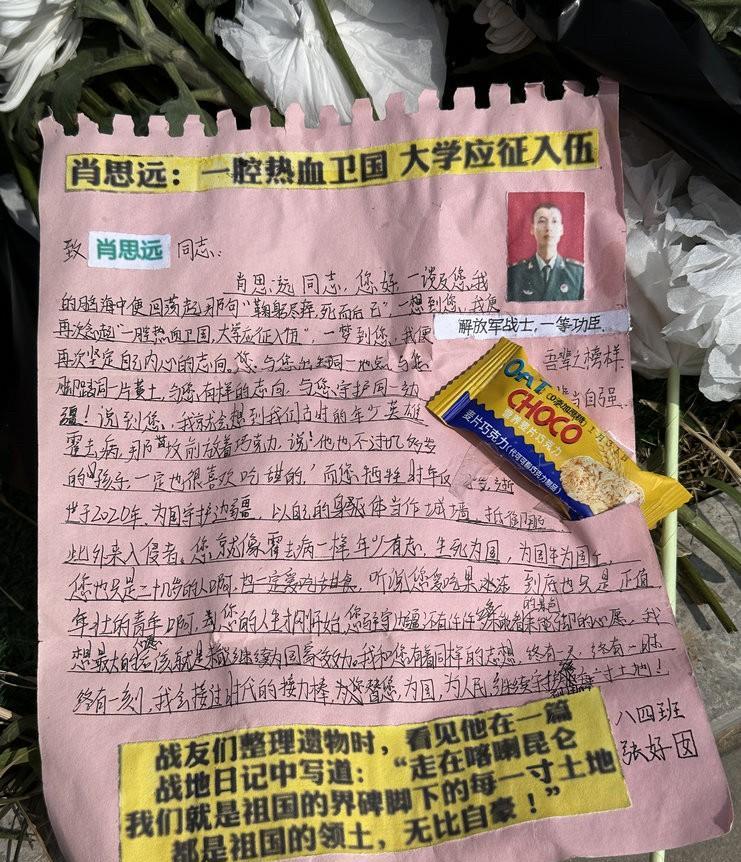 肖思远：一腔热血卫国 大学应征入伍
致 肖思远 同志：
肖思远同志，您好，一谈及您，我
的脑海中便回荡起那句“鞠躬尽瘁，死而后已”，一想到您，我便
再次念起“一腔热血卫国，大学应征入伍”一梦到您，我便
解放军战士，一等功臣，
再次坚定自己内心的志向，您，与您出生同一地点，与您
吾辈之榜样
脚踏同一片黄土，与您有样的志向，与您守护同一边
当自强
疆！说到您，我总会想到我们古时的年少英雄
霍去病，那 坟前放着巧克力，说：他也不过
的孩子，一定也很喜欢吃甜的，而您牺牲时年仅
于2020年，为国守护边疆，以自己的身体当作城墙，抵御
此外来入侵者，您就像霍去病一样年少有志，生死为国，
您也只是二十几岁的人啊，也一定喜吃甜食，听说您爱吃果冻 到底也只是正值
年壮的青年啊，您的人生才刚开始，您守边疆还有 的心愿，我
想最大的 应该就是 继续为国 我和您有着同样的志想，终有一天，终有一时
终有一刻，我会接过时代的接力棒，为 替您，为国，为人民，继续守护 寸土地！
八四班
张好
OAT
CHOCO
麦片巧克力
战友们整理遗物时，看见他在一篇
战地日记中写道：“走在喀喇昆仑
我们就是祖国的界碑脚下的每一寸土地
都是祖国的领土，无比自豪！”